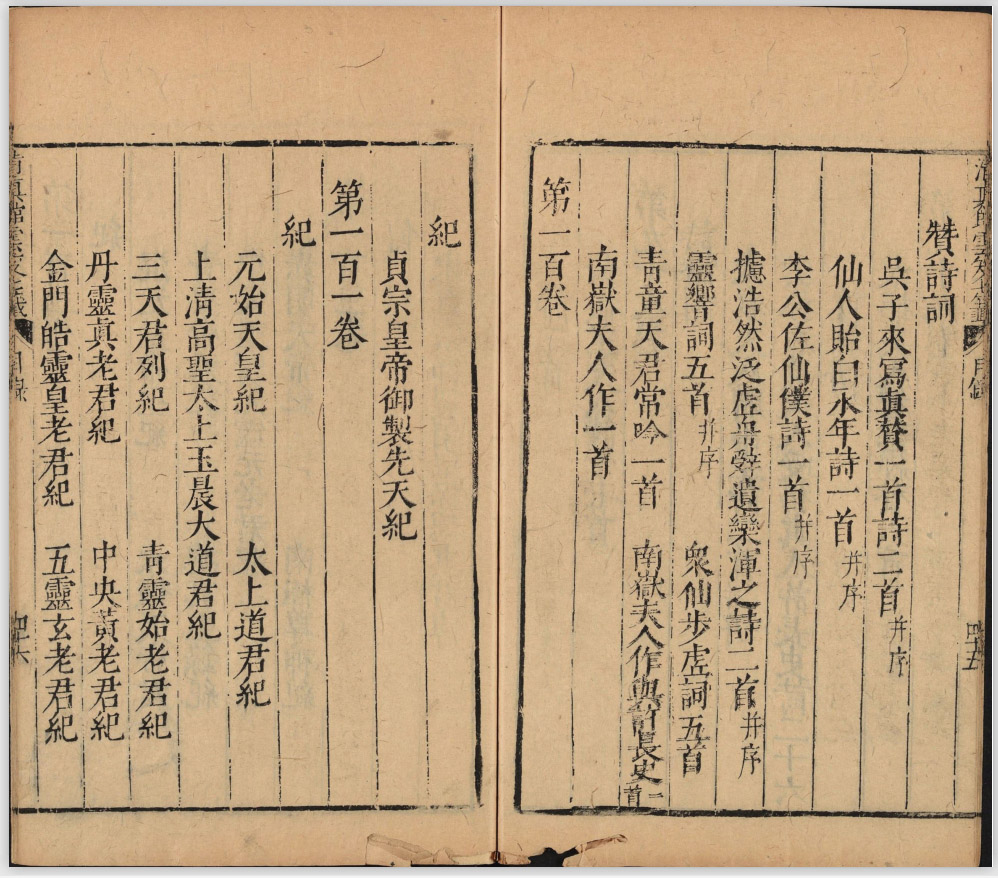 贊詩詞
吳子來寫真贊一首詩二首并序
仙人貽白永年詩一首并序
李公佐仙僕詩一首并序
攄浩然泛虛舟辭遺欒渾之詩二首并序
靈響詞五首并序 衆仙步虛詞五首
青童天君常吟一首 南嶽夫人作與許長史一首
南嶽夫人作一首
第一百卷
紀
真宗皇帝御製先天紀
第一百一卷
紀
元始天皇紀 太上道君紀
上清高聖太上玉晨大道君紀
三天君列紀 青靈始老君紀
丹靈真老君紀 中央黃老君紀
金門皓靈皇老君紀 五靈玄老君紀